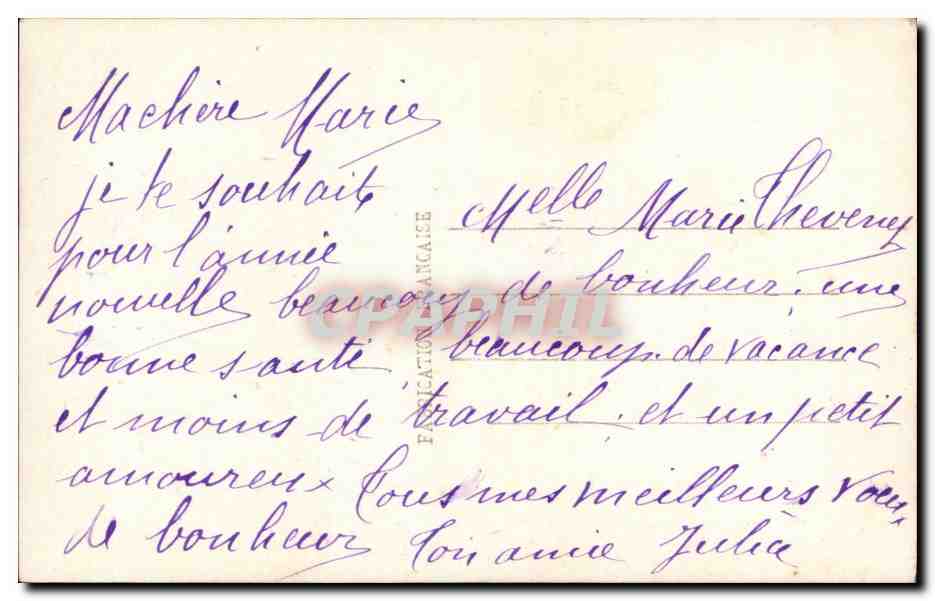 Ma chère Marie
je te souhaite
pour l'année
Melle Marie Thevenez
nouvelle beaucoup de bonheur. une
bonne santé, beaucoup. de vacance
et moins de travail. et un petit
amoureux Tous mes meilleurs voeux
de bonheur Ton amie Julia
FABRICATION FRANÇAISE
CPAPHIL